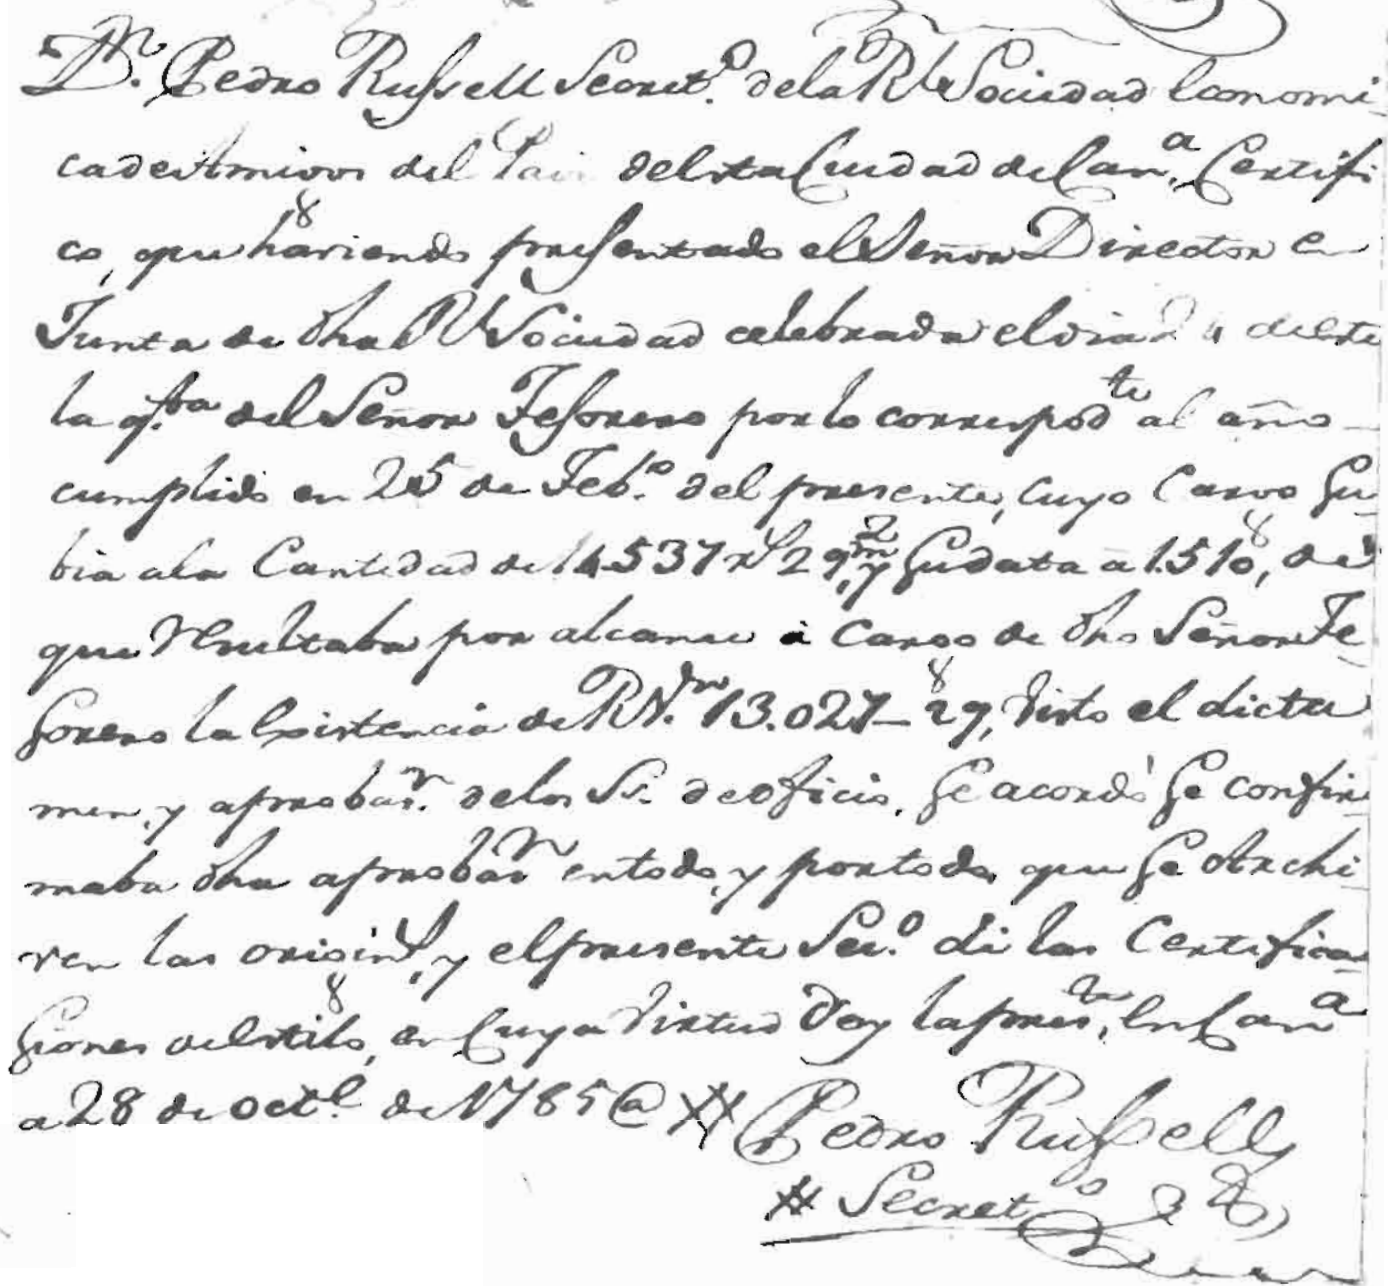 Dn. Pedro Russell Secret.º de la Rl Sociedad Economi-
ca de Amigos del Pais de esta Ciudad de Can.a Certifi
co, que haviendo presentado el Señor Director en
Junta de dha Rl Sociedad celebrada el dia 24 de este
la q.ta del Señor Tesorero por lo correspodte al año
cumplido en 25 de Feb.º del presente, cuyo Cargo Su-
bia ala Cantidad de 14537 rl 29 m, y Su data a 1.510, de
que resultaba por alcance à Cargo de dho Señor Te-
Sorero la Existencia de R Vn. 13.027-29, Visto el dicta
men, y aprobasn. de los Ss. de oficio, Se acordò Se confir
maba dha aprobasn en todo, y por todo, que Se Archi-
ven las originls, y el presente Sec.º dè las Certifica-
Siones de estilo, en Cuya Virtud Doy la pres.te, En Cana
a 28 de octe. de 1785@
Pedro Russell
Secret.o